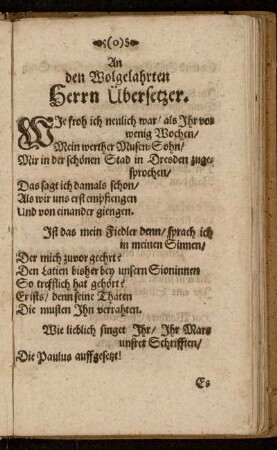 (o)
An
den Wolgelahrten
Herrn Übersetzer.
WIe froh ich neulich war/ als Ihr vor
wenig Wochen/
Mein werther Musen-Sohn/
Mir in der schönen Stad in Dresden zuge-
sprochen/
Das sagt ich damals schon/
Als wir uns erst empfiengen
Und von einander giengen.
Ist das mein Fiedler denn/ sprach ich
in meinen Sinnen/
Der mich zuvor geehrt?
Den Latien bisher bey unsern Sioninnen
So trefflich hat gehört?
Er ists/ denn seine Thaten
Die musten Ihn verrahten.
Wie lieblich singet Ihr/ Ihr Marx
unsrer Schrifften/
Die Paulus auffgesetzt!
Es